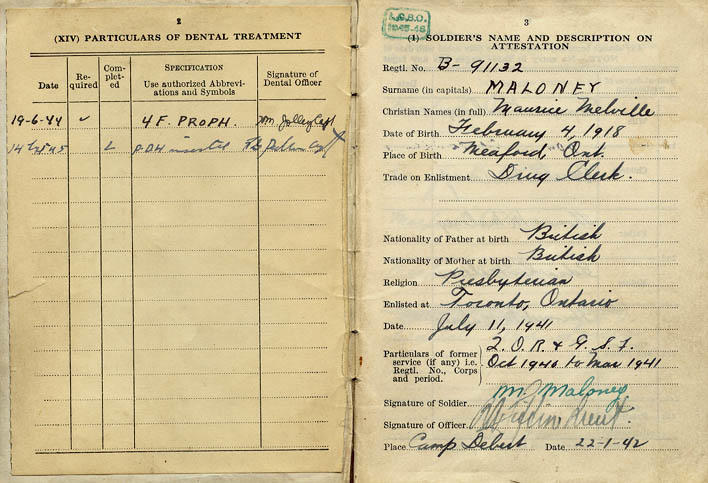 2
(XIV) PARTICULARS OF DENTAL TREATMENT
Date
Re-
quired
Com-
plet-
ed
SPECIFICATION
Use authorized Abbrevi-
ations and Symbols
Signature of
Dental Officer
19-6-44 ✓ 4 F. PROPH.
3
(1) SOLDIER'S NAME AND DESCRIPTION ON
ATTESTATION
Regtl. No. B-91132
Surname (in capitals) MALONEY
Christian Names (in full) Maurice Melville
Date of Birth February 4, 1918
Place of Birth Meaford, Ont.
Trade on Enlistment Drug Clerk.
Nationality of Father at birth British
Nationality of Mother at birth British
Religion Presbyterian
Enlisted at Toronto, Ontario
Date July 11, 1941
Particulars of former
service (if any) i.e.
Regtl. No., Corps
and period.
Oct 1940 to Mar 1941
Signature of Soldier Maloney
Signature of Officer
Place Camp Debert Date 22-1-42